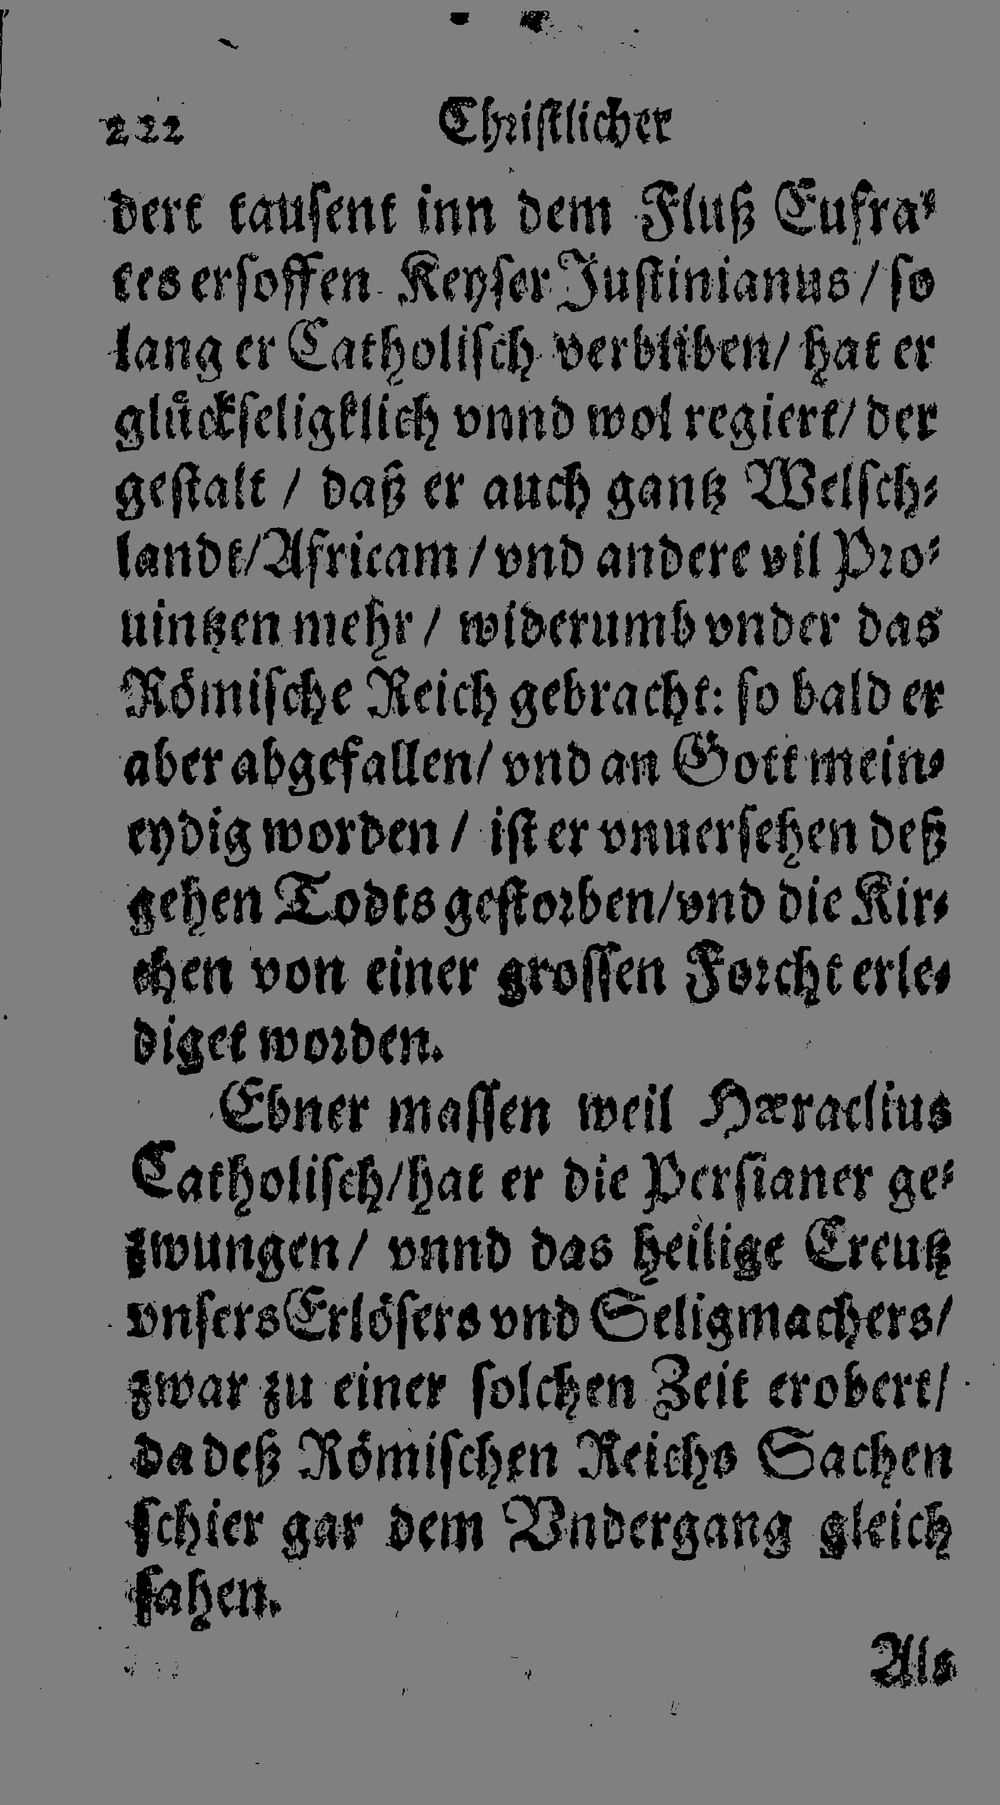 222 Christlicher
dert tausent inn dem Fluß Eufra⸗
tes ersoffen. Keyser Justinianus / so
lang er Catholisch verbliben / hat er
gluͤckseligklich vnnd wol regiert / der
gestalt / daß er auch gantz Welsch⸗
landt / Africam / vnd andere vil Pro⸗
uintzen mehr / widerumb vnder das
Roͤmische Reich gebracht: so bald er
aber abgefallen / vnd an Gott mein⸗
eydig worden / ist er vnuersehen deß
gehen Todts gestorben / vnd die Kir⸗
chen von einer grossen Forcht erle⸗
diget worden.
Ebner massen weil Hæraclius
Catholisch / hat er die Persianer ge⸗
zwungen / vnnd das heilige Creutz
vnsers Erloͤsers vnd Seligmachers /
zwar zu einer solchen Zeit erobert /
da deß Roͤmischen Reichs Sachen
schier gar dem Vndergang gleich
sahen.
Als